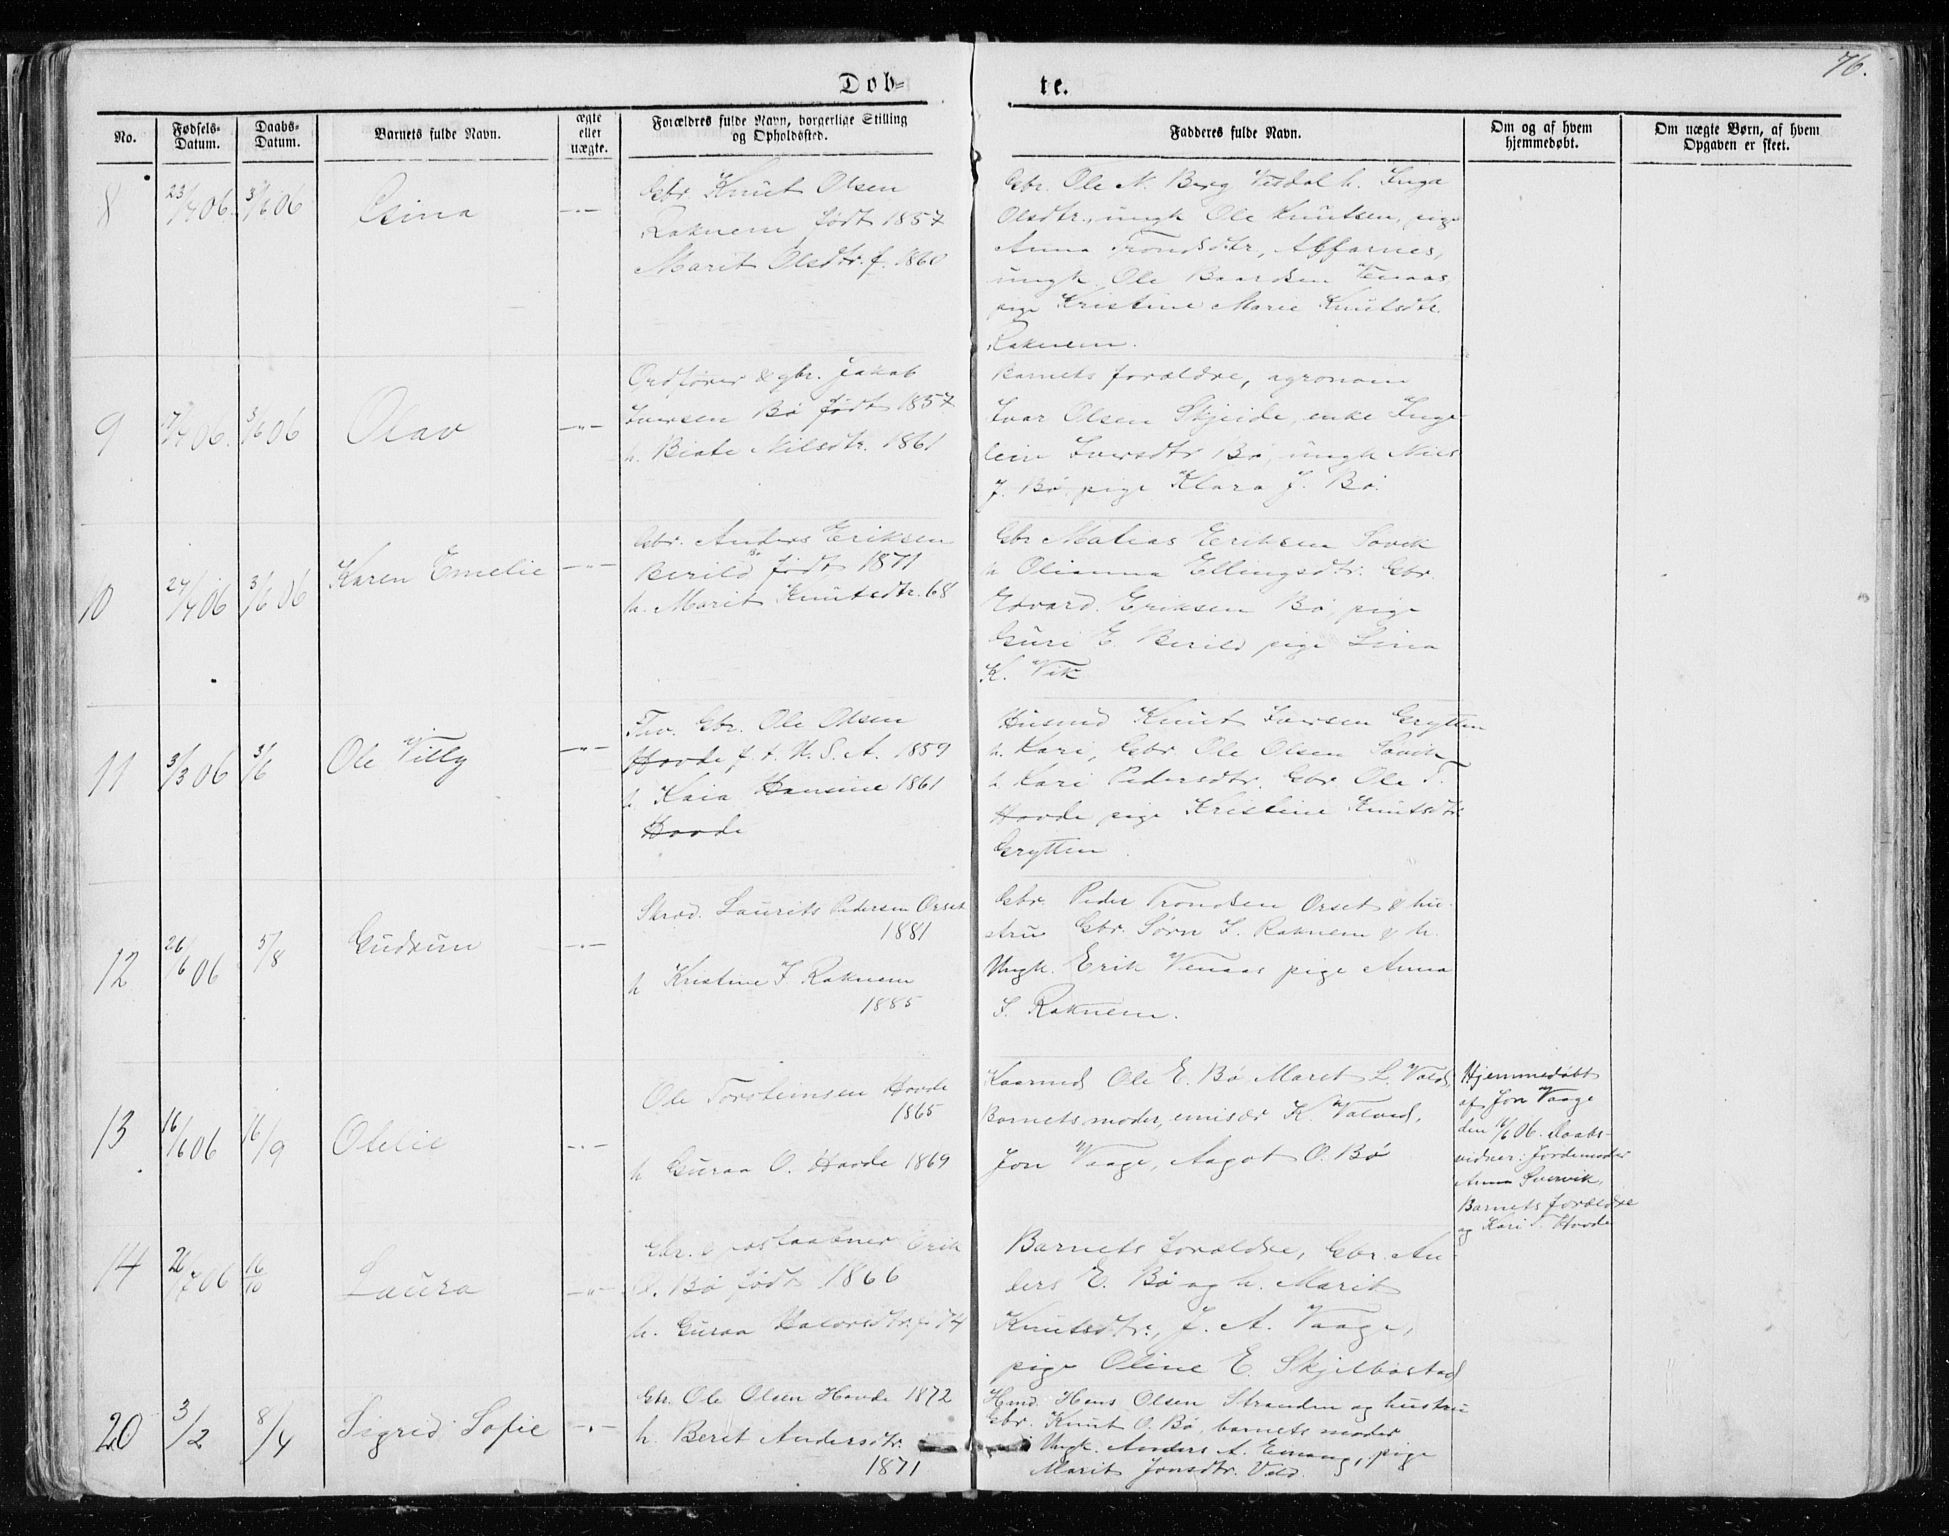 76.
Døb-
te.
No.
Fødsels-
Datum.
Daabs-
Datum.
Barnets fulde Navn.
ægte
eller
uægte.
Forældres fulde Navn, borgerlige Stilling
og Opholdssted.
Fadderes fulde Navn.
Om og af hvem
hjemmedøbt.
Om uægte Børn, af hvem
Opgaven er skeet.
8
23/4 06.
3/6 06
Gbr. Knut Olsen
Raknem født 1857
Marit Olsdtr. f. 1860
Gbr. Ole N. Berg Visdal h. Inga
Olsdtr., ungk Ole Knutsen, pige
Anna Trondsdtr, Alfarnes,
ungk Ole Baardsen Venaas
pige Kristine Marie Knutsdtr.
Raknem.
9
3/6 06
Olav
Ordfører & gbr. Jakob
Iversen Bø født 1857
h. Biate Nilsdtr. 1861
Barnets forældre, agronom
Ivar Olsen Skjeide, enke Inge
lein Iversdtr Bø, ungk Nils
J. Bø, pige Klara J. Bø.
10
24/4 06
3/6 06
Karen Emelie
Gbr. Anders Eriksen
Berild født 1871
h. Marit Knutsdtr. 68
Gbr Matias Eriksen Søvik
h Olianna Ellingsdtr. Gbr.
Edvard Eriksen Bø, pige
Guri E. Berild pige Lina
K. Vik
11
3/3 06
3/6
Ole Villy
Gbr. Ole Olsen
Hovde f. i U. S. A. 1859
h Kaia Hansine 1861
Hovde
Husmd Knut Iversen Grytten
h. Kari, Gbr Ole Olsen Søvik
h Kari Pedersdtr. Gbr Ole T.
Hovde pige Kristine Knutsdtr
Grytten.
12
26/6 06
5/8
Gudrun
Skræd. Laurits Pedersen Orset
1881
h Kristine I Raknem
1885
Gbr. Peder Trondsen Orset & hu-
stru Gbr. Sørn I. Raknem & h.
Ungk. Erik Venaas pige Anna
I. Raknem.
13
16/6 06
16/9
Otelie
Ole Torsteinsen Hovde
1865
h Guraa O. Hovde 1869
Kaarmd Ole E. Bø Maret L. Vold,
Barnets moder, emisær K. Valved,
Jon Vaage, Aagot O. Bø
Hjemmedøbt
af Jon Vaage
den 16/6 06. Daabs-
vidner: Jordemoder
Anna Sværvik,
Barnets forældre
og Kari T. Hovde
14
26/7 06
16/10
Laura
Gbr. & postaabner Erik
O. Bø født 1866
h. Guraa Halvorsdtr. f. 74
Barnets forældre, Gbr. An-
ders E. Bø og h. Marit
Knutsdtr., J. A. Vaage,
pige Oline E. Skjelbostad
20
3/2
8/4
Sigrid Sofie
Gbr. Ole Olsen Hovde 1872
h. Beret Andersdtr.
1871
Hmd. Hans Olsen Stranden og hustru
Gbr. Knut O. Bø, barnets moder
Ungk. Anders A. Einang, pige
Marit Jonsdtr. Vold.